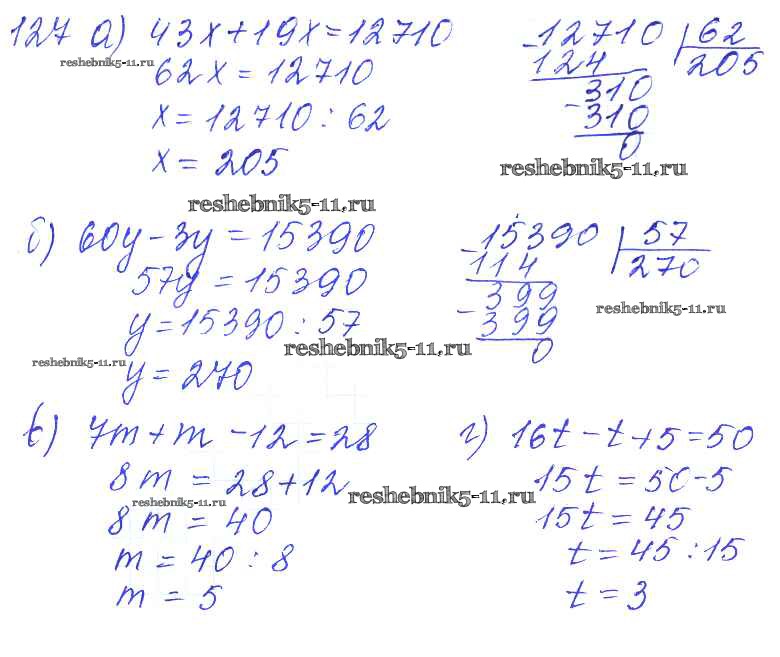 127 а) 43x+19x=12710
62x = 12710
x = 12710 : 62
x = 205
-12710 | 62
124 205
310
-310
0
reshebnik5-11.ru
reshebnik5-11.ru
reshebnik5-11.ru
б) 60y-3y = 15390
57y = 15390
y = 15390 : 57
y = 270
-15390 | 57
114 270
399
-399
0
reshebnik5-11.ru
reshebnik5-11.ru
reshebnik5-11.ru
в) 7m+m-12=28
8m = 28+12
8m = 40
m = 40 : 8
m = 5
reshebnik5-11.ru
reshebnik5-11.ru
г) 16t-t+5=50
15t = 50-5
15t = 45
t = 45 : 15
t = 3